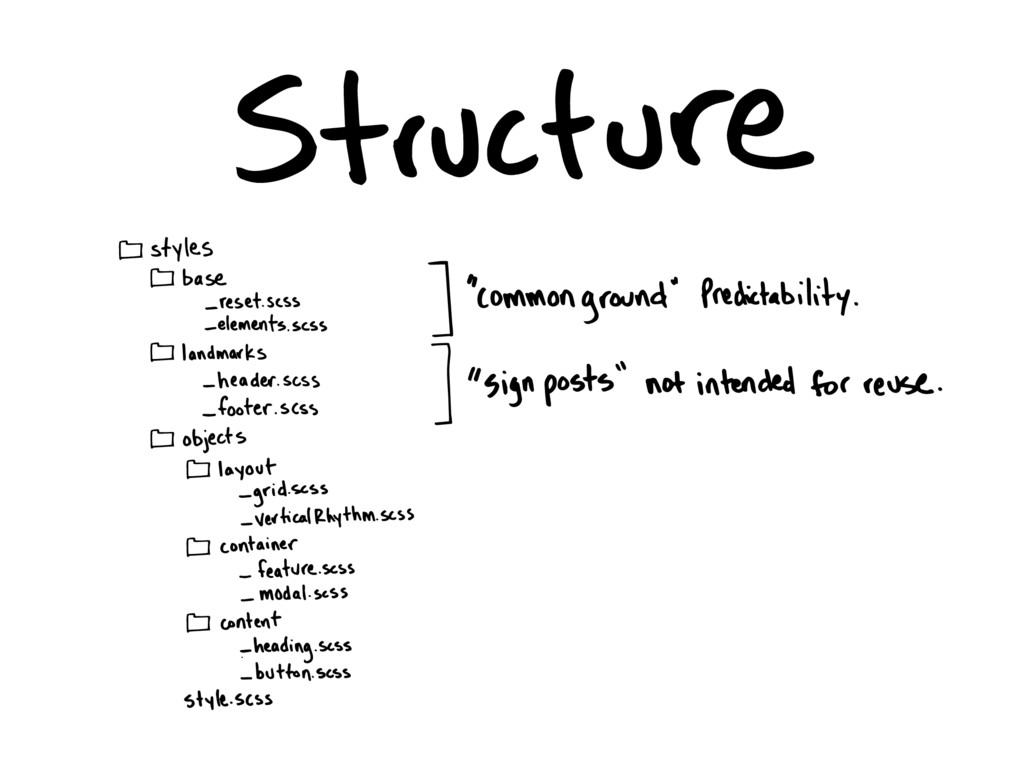 Structure
styles
base
_reset.scss
_elements.scss
"common ground" Predictability.
landmarks
_header.scss
_footer.scss
"sign posts" not intended for reuse.
objects
layout
_grid.scss
_verticalRhythm.scss
container
_feature.scss
_modal.scss
content
_heading.scss
_button.scss
style.scss